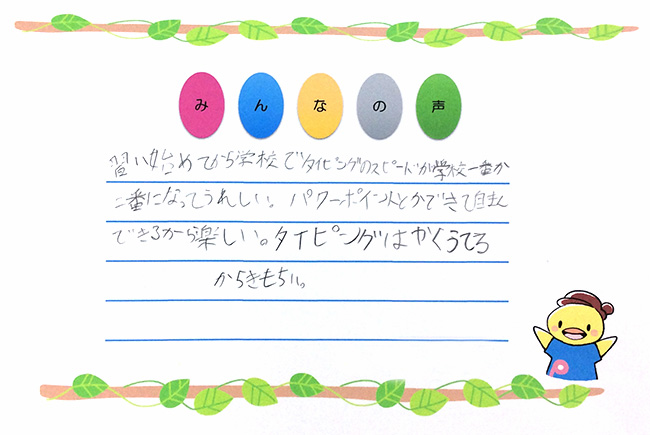 みんなの声
習い始めてから学校でタイピングのスピードが学校一番か
二番になってうれしい。パワーポイントとかできて自まん
できるから楽しい。タイピングはかくうてる
からきもちい。
P